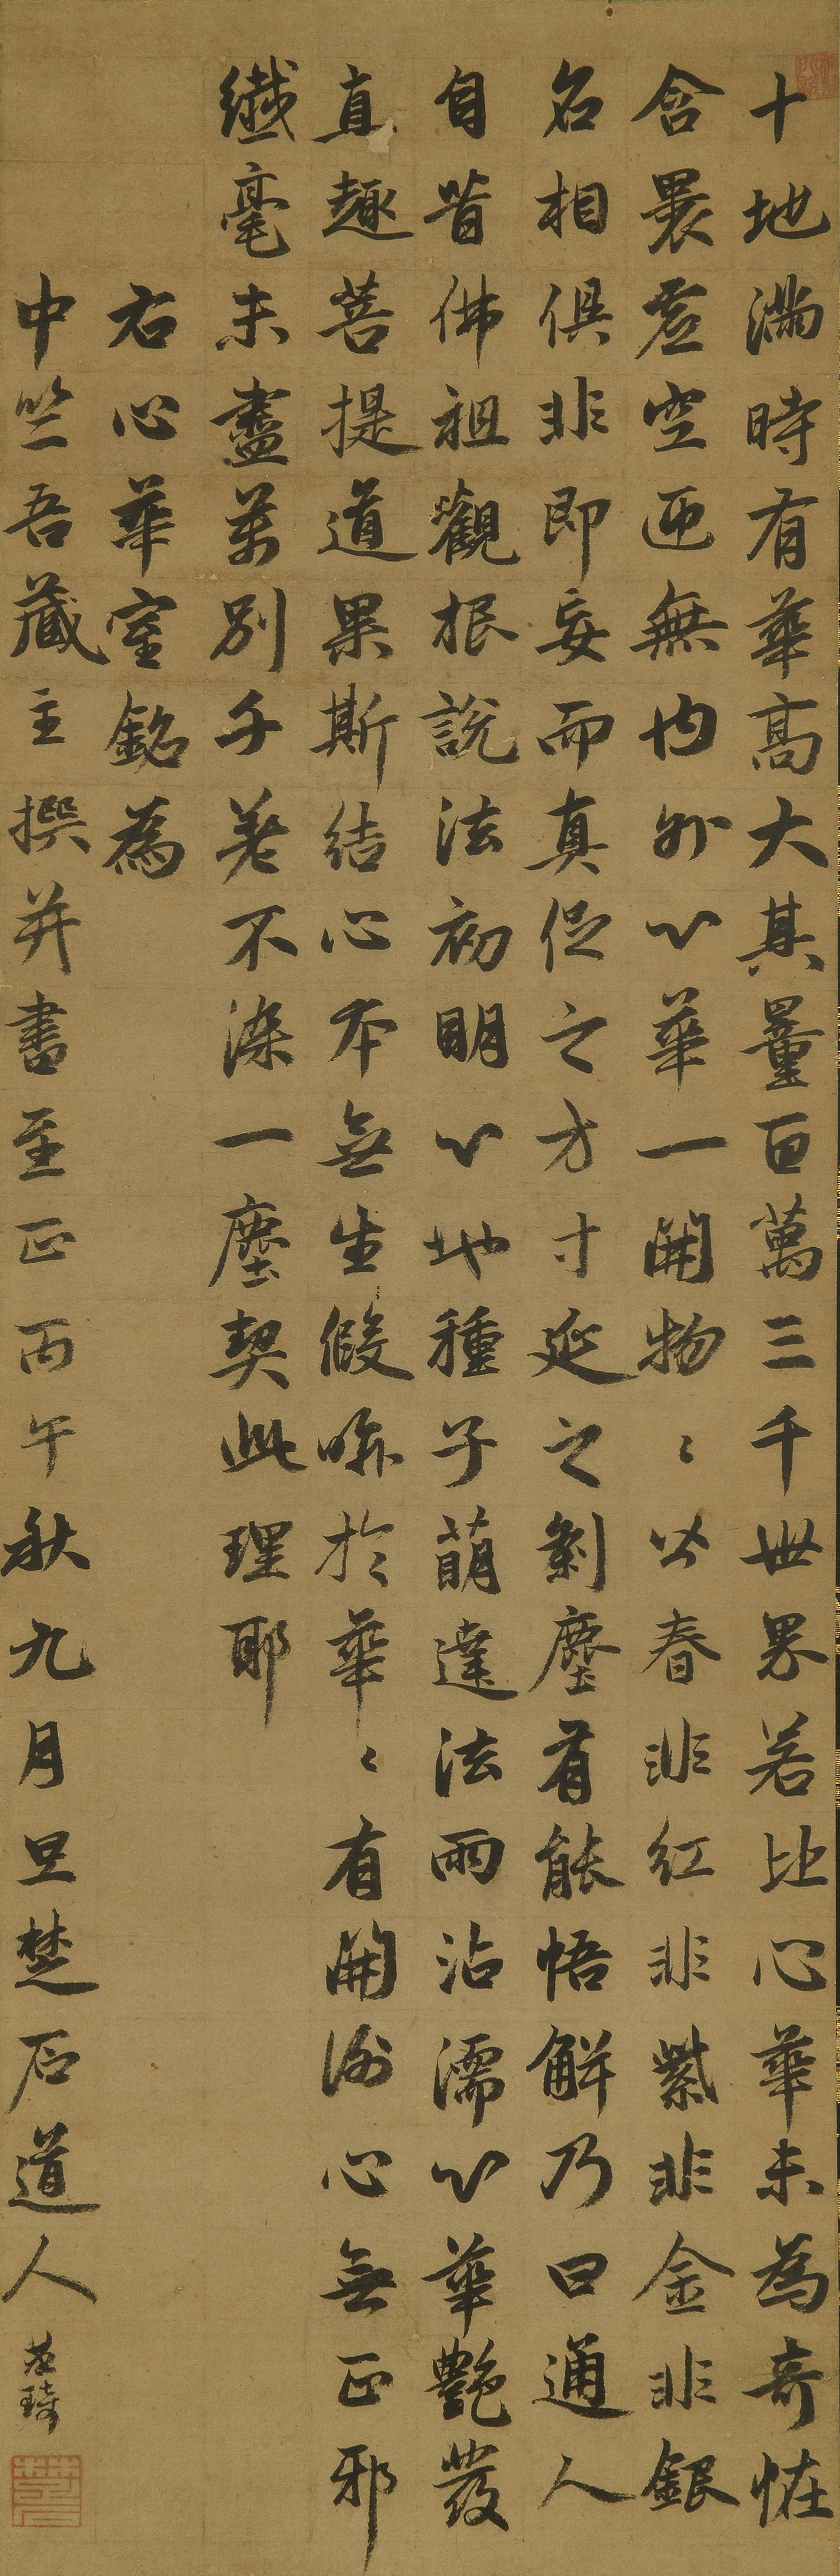 十地滿時有華高大其量百萬三千世界若比心華未為奇恠
含褁虛空匝無内外心華一開物〻皆春非紅非紫非金非銀
名相俱非即妄而真促之方寸延之剎塵有能悟解乃曰通人
自昔佛祖觀根說法初明心地種子萌達法雨沾濡心華艷發
真趣菩提道果斯結心本無生假喻於華〻有開謝心無正邪
纎毫未盡萬別千差不染一塵契此理耶
右心華室銘為
中竺吾藏主撰并書至正丙午秋九月旦楚石道人梵琦